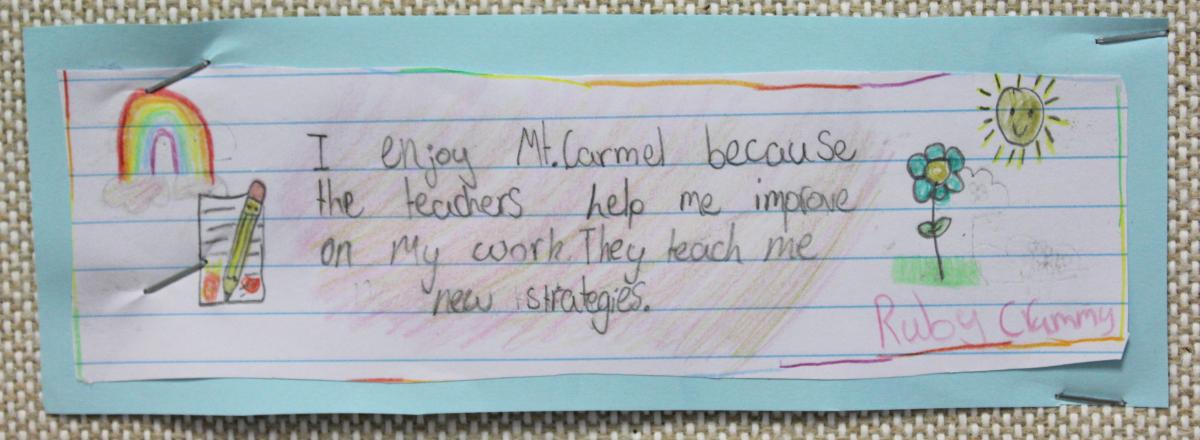 I enjoy Mt. Carmel because
the teachers help me improve
on my work. They teach me
new strategies.
Ruby Crummy